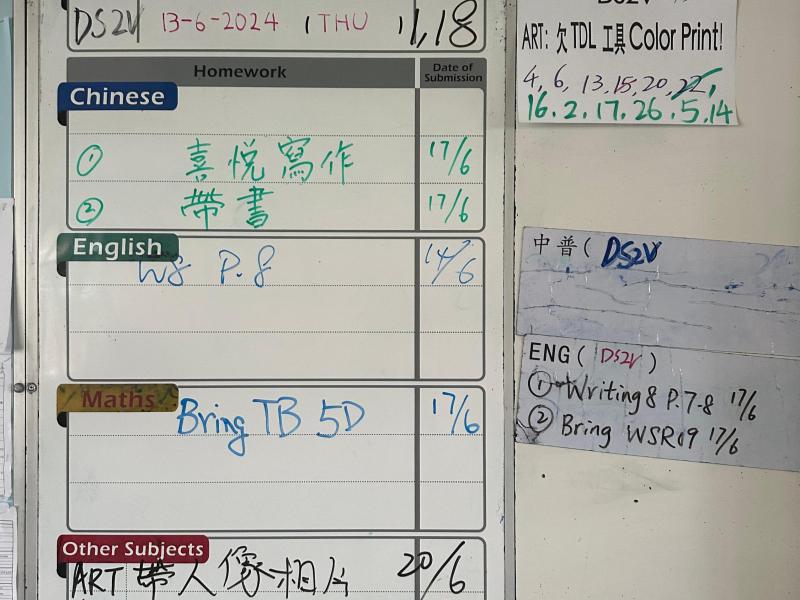 DS2V 13-6-2024 ( THU 11,18
Homework Date of Submission
Chinese
① 喜悅寫作 17/6
② 帶書 17/6
English
W8 P.8 14/6
Maths
Bring TB 5D 17/6
Other Subjects
ART 帶人像相片 20/6
DS2V
ART: 欠 TDL 工具 Color Print!
4, 6, 13, 15, 20, 22,
16. 2. 17. 26. 5. 14
中普( DS2V
ENG( DS2V )
① Writing8 P.7-8 17/6
② Bring WSR09 17/6